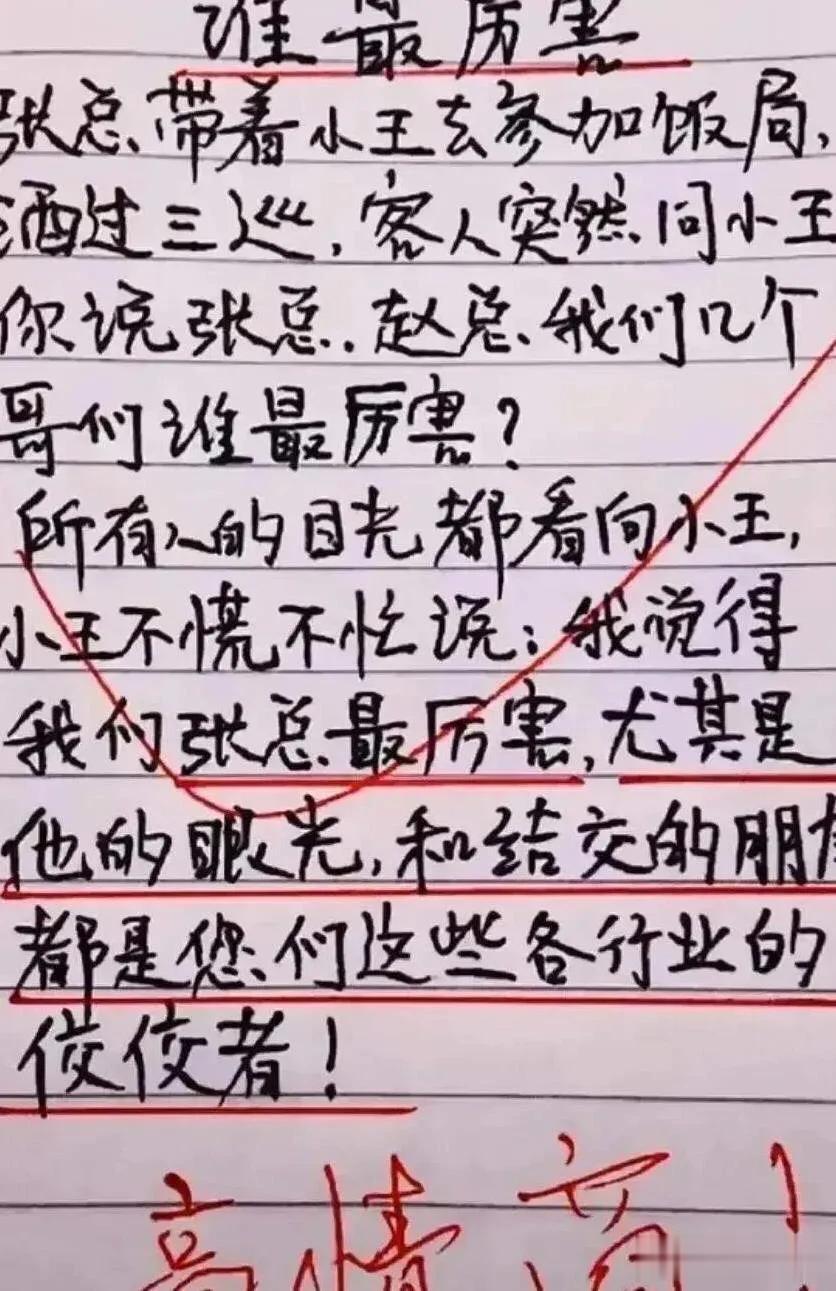 谁最厉害
张总带着小王去参加饭局,
酒过三巡,客人突然问小王
你说张总.赵总我们几个
哥们谁最厉害?
所有人的目光都看向小王,
小王不慌不忙说:我觉得
我们张总最厉害,尤其是
他的眼光,和结交的朋友
都是您们这些各行业的
佼佼者!
高情商!